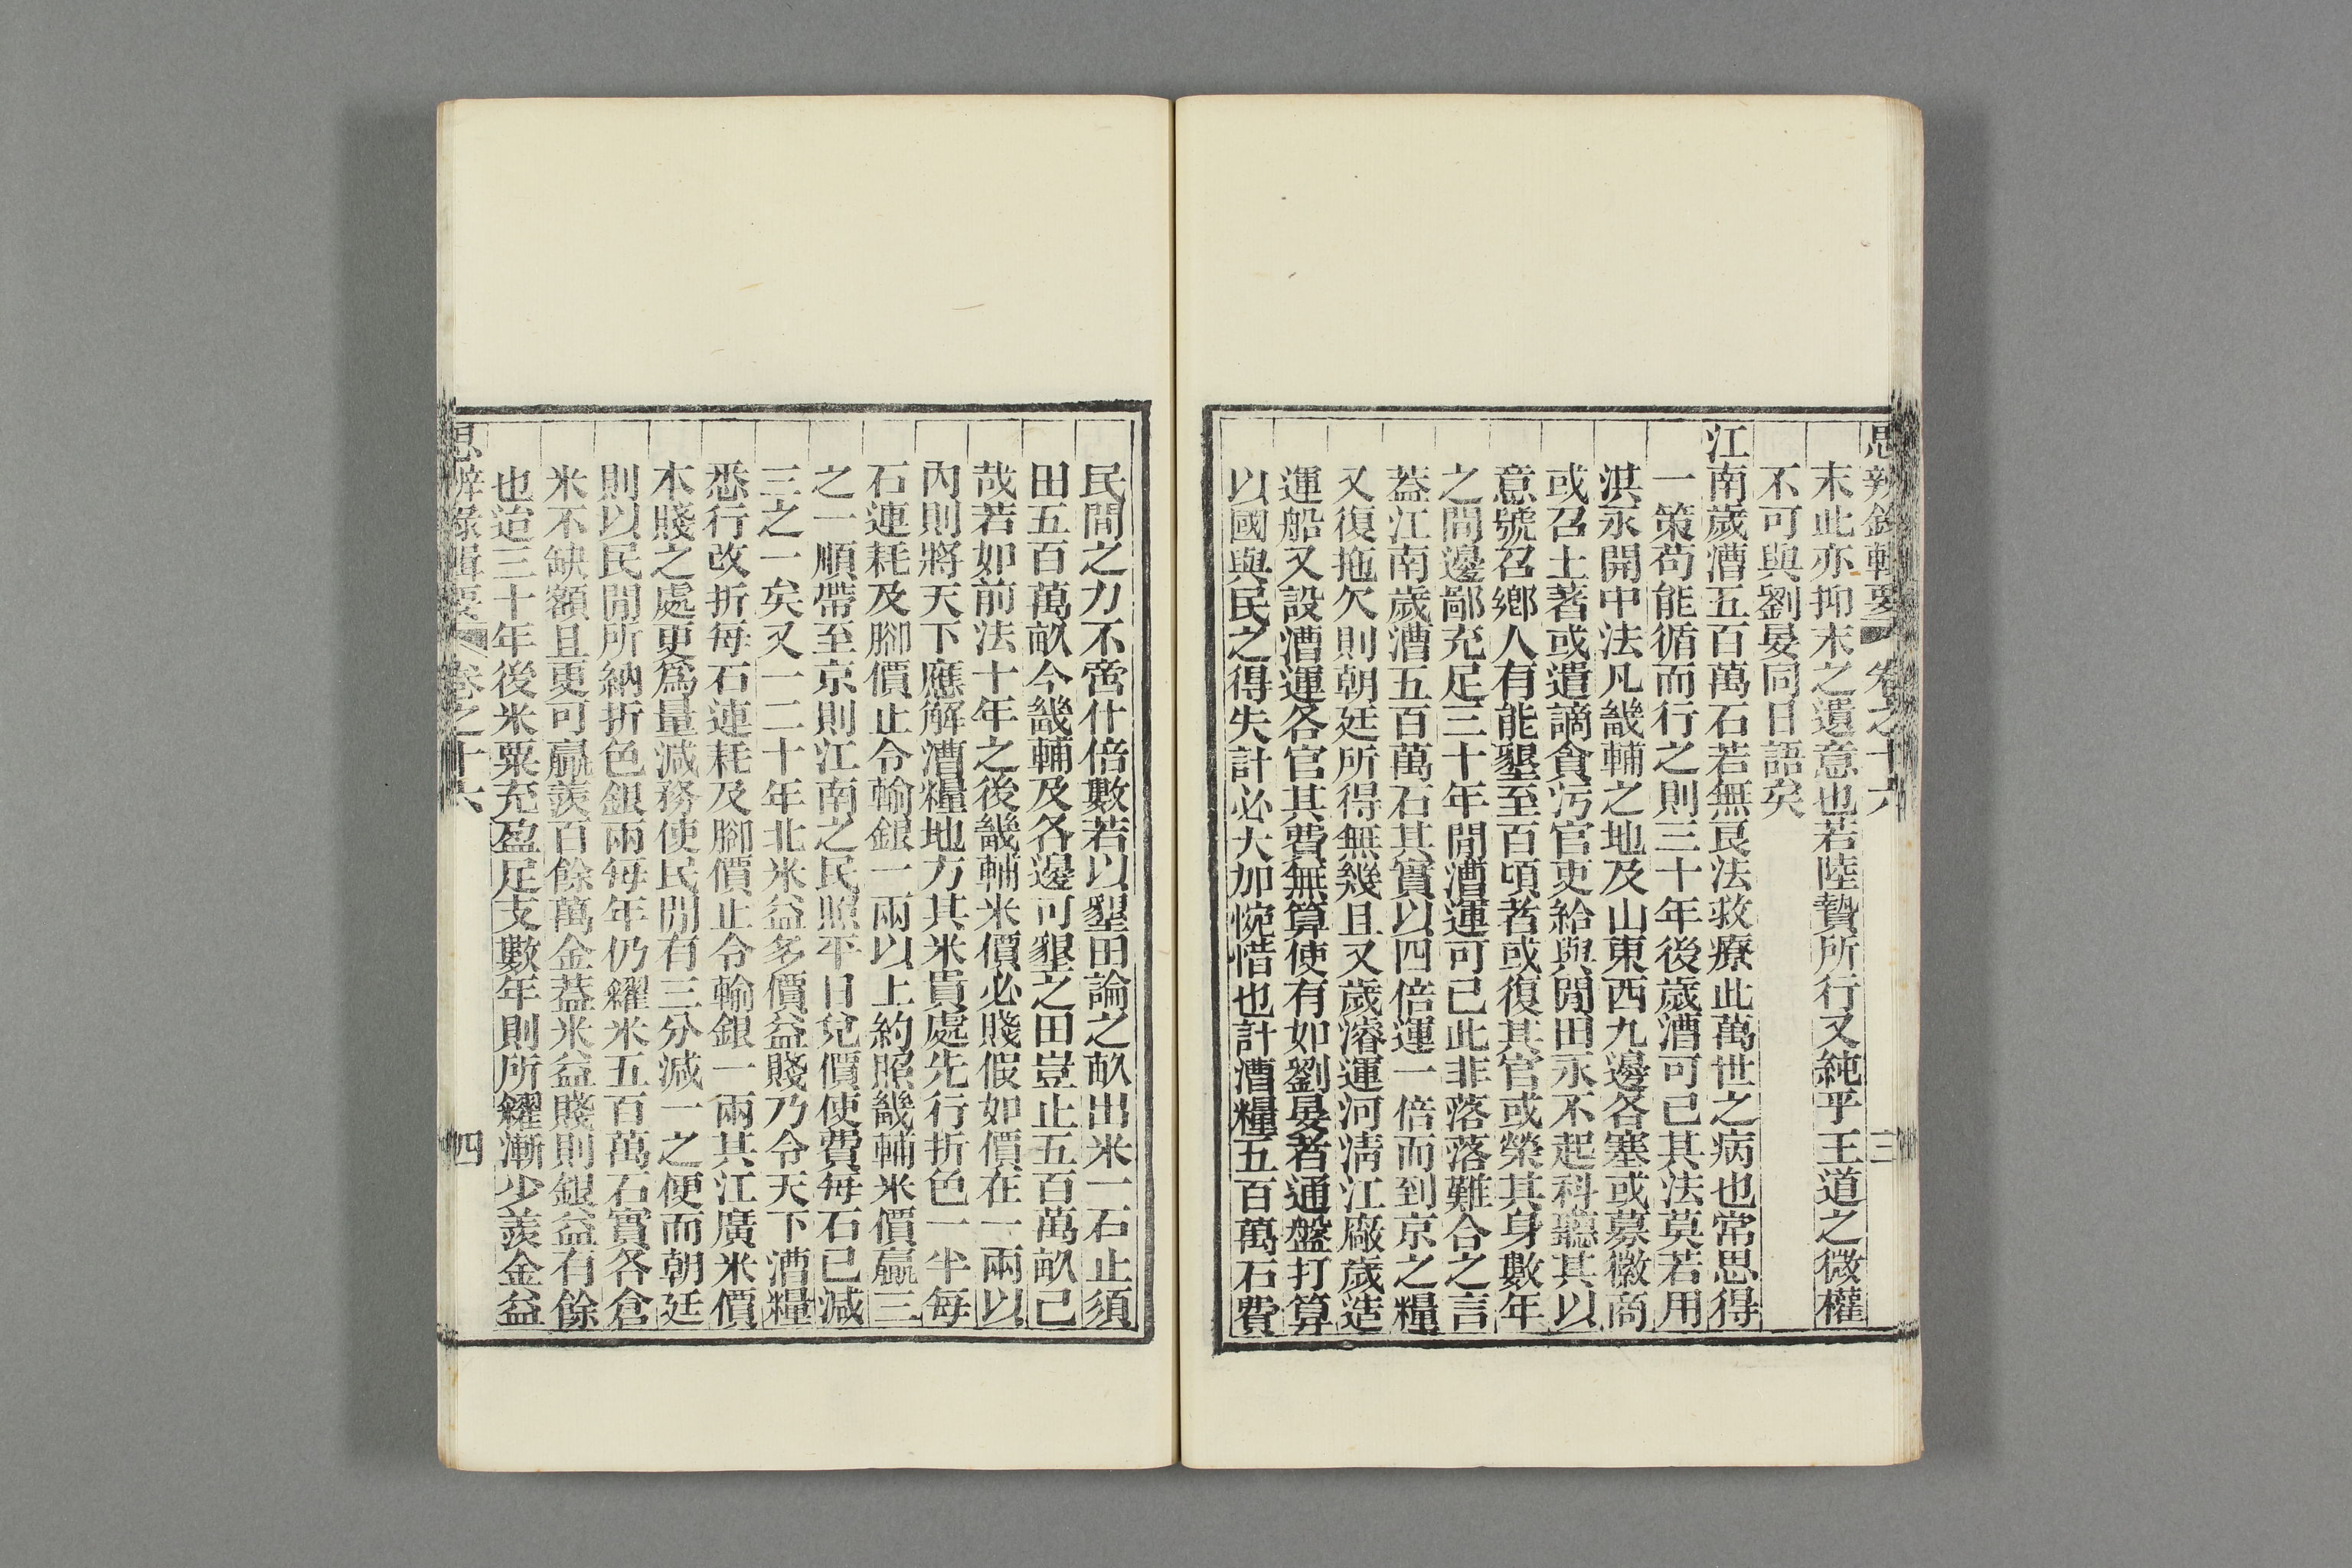 思辨錄輯要 卷之十六 三
末此亦抑末之遺意也若陸贄所行又純乎王道之微權
不可與劉晏同日語矣
江南歲漕五百萬石若無良法救療此萬世之病也常思得
一策苟能循而行之則三十年後歲漕可已其法莫若用
淇永開中法凡畿輔之地及山東西九邊各塞或募徽商
或召土著或遣謫貪污官吏給與閒田永不起科聽其以
意號召鄉人有能墾至百頃者或復其官或榮其身數年
之間邊鄙充足三十年閒漕運可已此非落落難合之言
葢江南歲漕五百萬石其實以四倍運一倍而到京之糧
又復拖欠則朝廷所得無幾且又歲濬運河淸江廠歲造
運船又設漕運各官其費無算使有如劉晏者通盤打算
以國與民之得失計必大加惋惜也計漕糧五百萬石費
民間之力不啻什倍數若以墾田論之畝出米一石止須
田五百萬畝今畿輔及各邊可墾之田豈止五百萬畝已
哉若如前法十年之後畿輔米價必賤假如價在一兩以
內則將天下應解漕糧地方其米貴處先行折色一半每
石連耗及腳價止令輸銀一兩以上約照畿輔米價贏三
之一順帶至京則江南之民照平日兌價使費每石已減
三之一矣又一二十年北米益多價益賤乃令天下漕糧
悉行改折每石連耗及腳價止令輸銀一兩其江廣米價
本賤之處更爲量減務使民閒有三分減一之便而朝廷
則以民閒所納折色銀兩每年仍糴米五百萬石實各倉
米不缺額且更可贏羨百餘萬金葢米益賤則銀益有餘
也迨三十年後米粟充盈足支數年則所糴漸少羨金益
思辨錄輯要 卷之十六 四